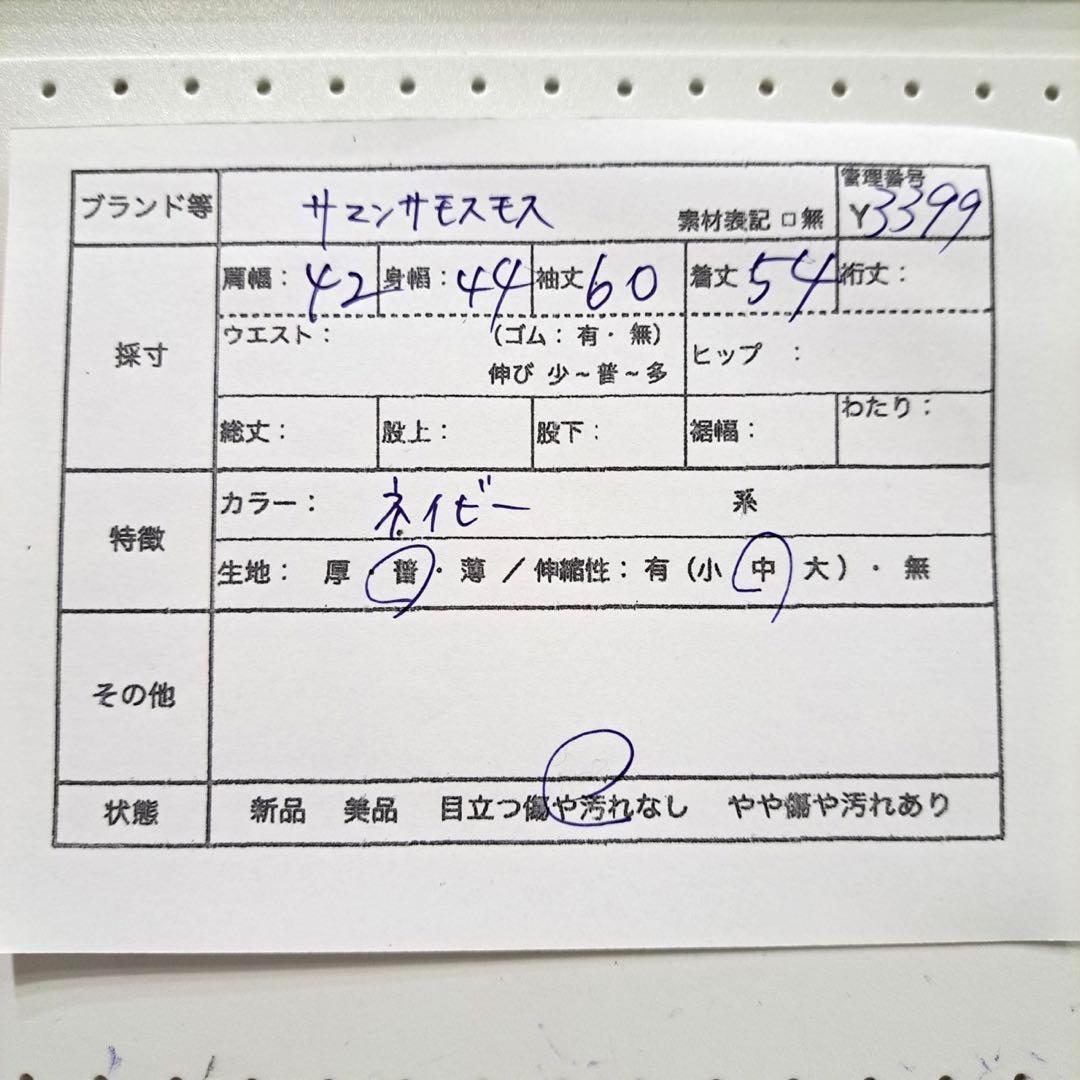 ブランド等 サマンサモスモス 素材表記 □ 無 管理番号 Y3399
採寸 肩幅: 42 身幅: 44 袖丈 60 着丈 54 裄丈:
ウエスト: (ゴム: 有・ 無)
伸び 少~普~多 ヒップ :
総丈: 股上: 股下: 裾幅: わたり:
特徴 カラー: ネイビー 系
生地: 厚・普・薄 / 伸縮性: 有 (小 中 大)・ 無
その他
状態 新品 美品 目立つ傷や汚れなし やや傷や汚れあり